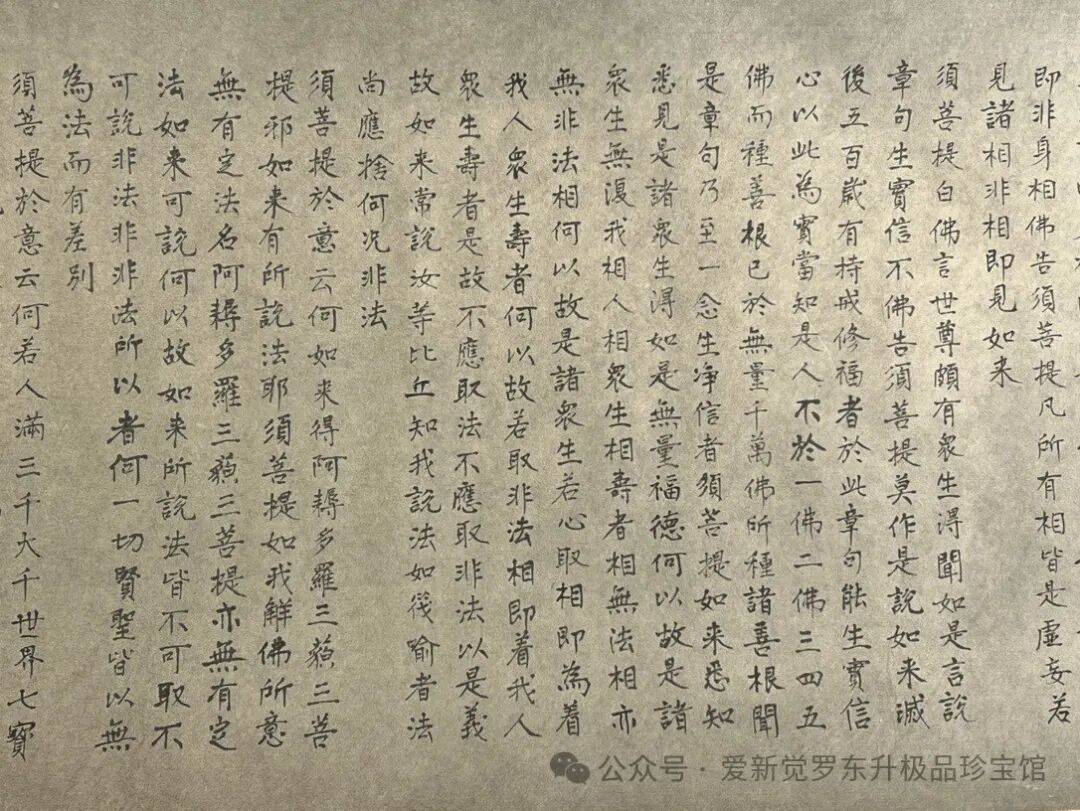 即非身相佛告須菩提凡所有相皆是虛妄若
見諸相非相即見如来
須菩提白佛言世尊頗有衆生淂聞如是言說
章句生實信不佛告須菩提莫作是說如来滅
後五百歲有持戒修福者於此章句能生實信
心以此為實當知是人不於一佛二佛三四五
佛而種善根已於無量千萬佛所種諸善根聞
是章句乃至一念生淨信者須菩提如来悉知
悉見是諸衆生淂如是無量福德何以故是諸
衆生無復我相人相衆生相壽者相無法相亦
無非法相何以故是諸衆生若心取相即為着
我人衆生壽者何以故若取非法相即着我人
衆生壽者是故不應取法不應取非法以是義
故如来常說汝等比丘知我說法如筏喻者法
尚應捨何况非法
須菩提於意云何如来得阿耨多羅三藐三菩
提邪如来有所說法耶須菩提如我解佛所意
無有定法名阿耨多羅三藐三菩提亦無有定
法如来可說何以故如来所說法皆不可取不
可說非法非非法所以者何一切賢聖皆以無
為法而有差別
須菩提於意云何若人滿三千大千世界七寶
公众号·爱新觉罗东升极品珍宝馆